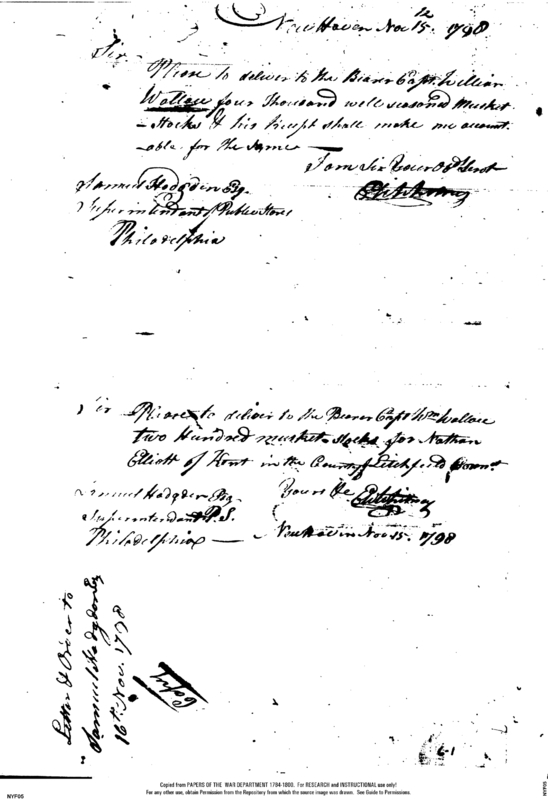 New Haven Nov 15.th 1798
Sir
Please to deliver to the Bearer Capt. William
Wallace four Thousand well seasoned Musket
-Stocks & his Receipt shall make me account.
-able for the same —
I am Sir Your Obdt. Servt
Samuel Hodgden Esq.
Superintendant of Public Stores
Philadelphia
Sir Please to deliver to the Bearer Capt Wm Wallace
two Hundred musket-stocks for Nathan
Elliott of Kent in the County of Litchfield Connt
Samuel Hodgden Esq. Yours &c
Superintendant P.S.
Philadelphia — New Haven Nov 15. 1798
Letter & Order to
Samuel Hodgdon Esq
16th. Nov. 1798
Copy
6-1
Copied from PAPERS OF THE WAR DEPARTMENT 1784-1800. For RESEARCH and INSTRUCTIONAL use only!
For any other use, obtain Permission from the Repository from which the source image was drawn. See Guide to Permissions.
NYF05